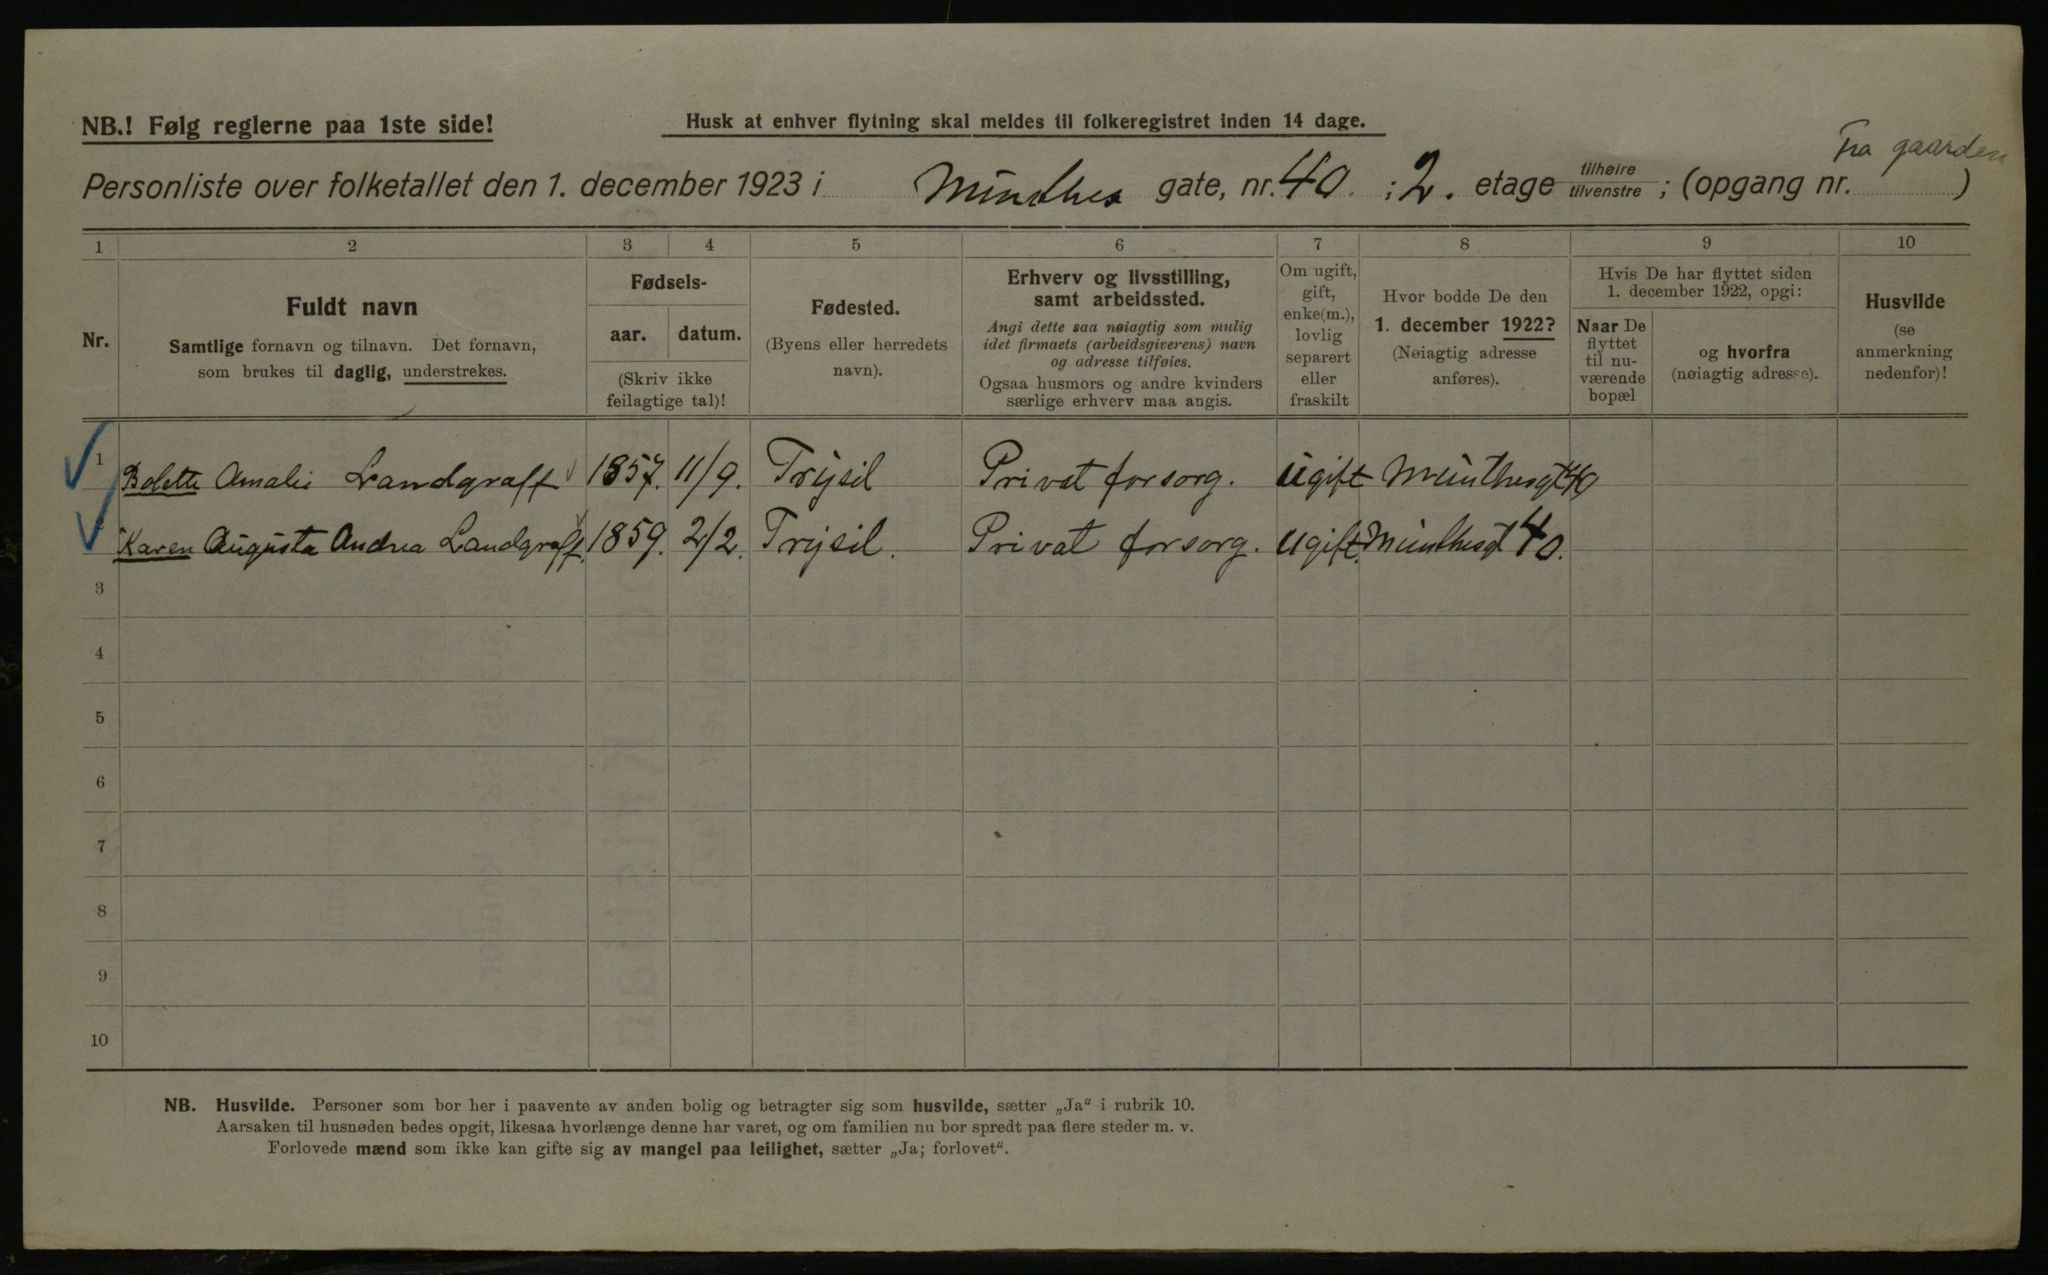 NB.! Følg reglerne paa 1ste side!
Husk at enhver flytning skal meldes til folkeregistret inden 14 dage.
Fra gaarden
Personliste over folketallet den 1. december 1923 i Munthes gate, nr. 40. ; 2. etage tilhøire tilvenstre ; (opgang nr. )
1 2 3 4 5 6 7 8 9 10
Nr.
Fuldt navn
Samtlige fornavn og tilnavn. Det fornavn,
som brukes til daglig, understrekes.
Fødsels-
aar. datum.
(Skriv ikke
feilagtige tal)!
Fødested.
(Byens eller herredets
navn).
Erhverv og livsstilling,
samt arbeidssted.
Angi dette saa nøiagtig som mulig
idet firmaets (arbeidsgiverens) navn
og adresse tilføies.
Ogsaa husmors og andre kvinders
særlige erhverv maa angis.
Om ugift,
gift,
enke(m.),
lovlig
separert
eller
fraskilt
Hvor bodde De den
1. december 1922?
(Nøiagtig adresse
anføres).
Hvis De har flyttet siden
1. december 1922, opgi:
Naar De
flyttet
til nu-
værende
bopæl
og hvorfra
(nøiagtig adresse).
Husvilde
(se
anmerkning
nedenfor)!
1 Bolette Amalie Landgraff 1857. 11/9. Trysil Privat forsorg. ugift Munthesgt 40
Karen Augusta Andrea Landgraff. 1859. 2/2. Trysil. Privat forsorg. Ugift. Munthesgt 40.
3
4
5
6
7
8
9
10
NB. Husvilde. Personer som bor her i paavente av anden bolig og betragter sig som husvilde, sætter „Ja“ i rubrik 10.
Aarsaken til husnøden bedes opgit, likesaa hvorlænge denne har varet, og om familien nu bor spredt paa flere steder m. v.
Forlovede mænd som ikke kan gifte sig av mangel paa leilighet, sætter „Ja; forlovet“.